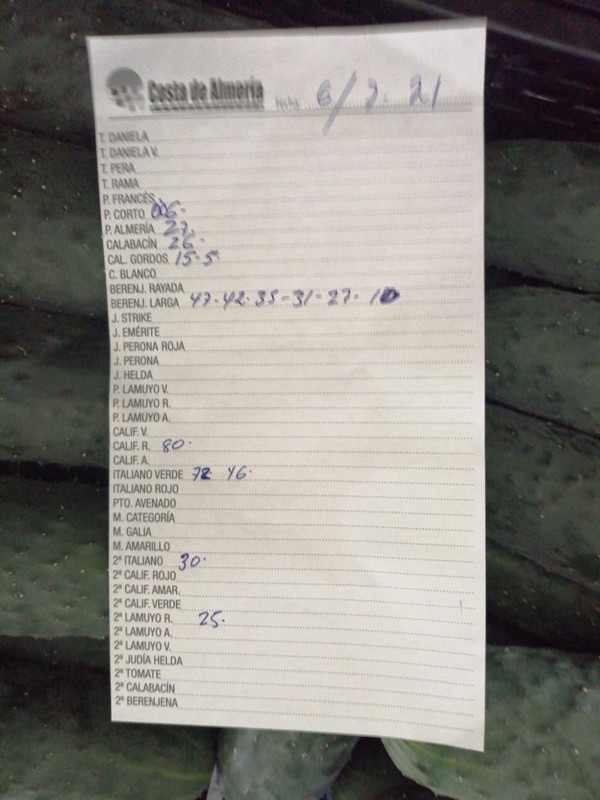 Costa de Almería Fecha: 6/2. 21
T. DANIELA
T. DANIELA V.
T. PERA
T. RAMA
P. FRANCÉS
P. CORTO 06.
P. ALMERÍA 27.
CALABACÍN 26.
CAL. GORDOS 15-5
C. BLANCO
BERENJ. RAYADA
BERENJ. LARGA 47-42-35-31-27-10
J. STRIKE
J. EMÉRITE
J. PERONA ROJA
J. PERONA
J. HELDA
P. LAMUYO V.
P. LAMUYO R.
P. LAMUYO A.
CALIF. V.
CALIF. R. 80.
CALIF. A.
ITALIANO VERDE 72 46.
ITALIANO ROJO
PTO. AVENADO
M. CATEGORÍA
M. GALIA
M. AMARILLO
2ª ITALIANO 30.
2ª CALIF. ROJO
2ª CALIF. AMAR.
2ª CALIF. VERDE
2ª LAMUYO R. 25.
2ª LAMUYO A.
2ª LAMUYO V.
2ª JUDÍA HELDA
2ª TOMATE
2ª CALABACÍN
2ª BERENJENA